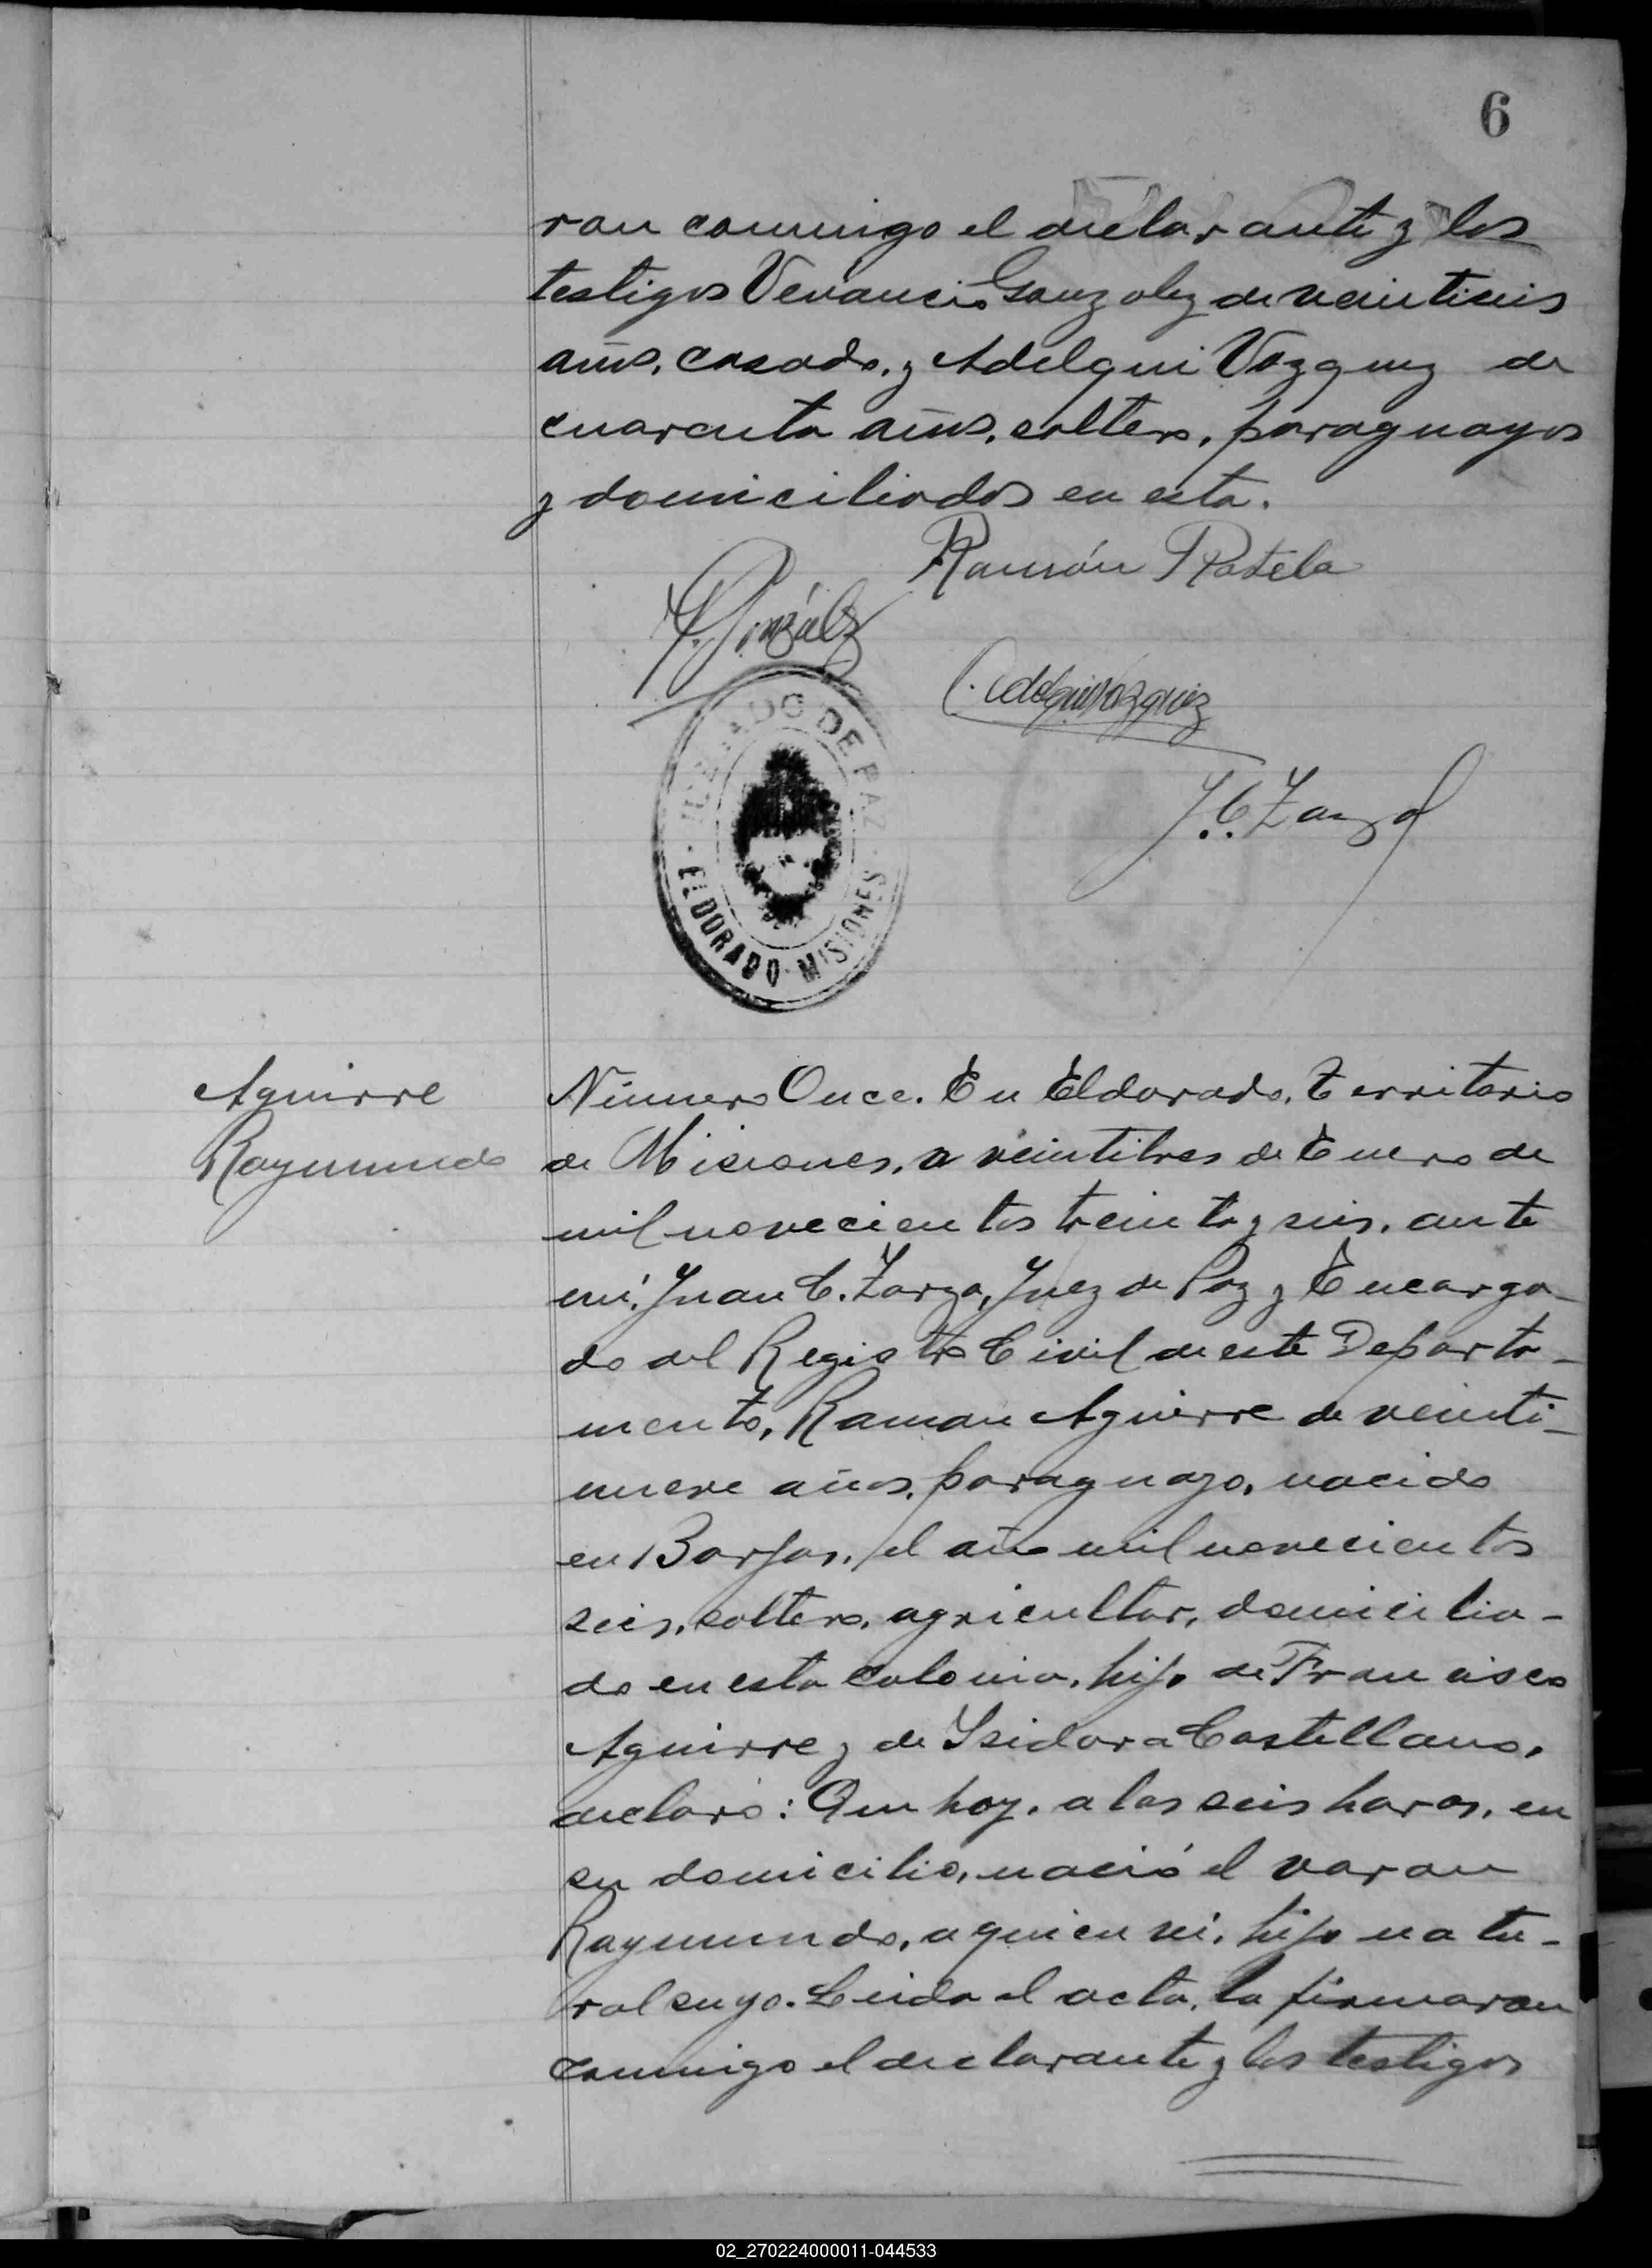 6
ran conmigo el declarante y los
testigos Venancio Gonzalez de veintiseis
años, casado, y Adelqui Vazquez de
cuarenta años, soltero, paraguayos
y domiciliados en esta.
Ramón
V. González
Adelqui Vazquez
J. C. Zarza
JUZGADO DE PAZ
ELDORADO - MISIONES
Aguirre
Raymundo
Número Once. En Eldorado, Territorio
de Misiones, a veintitres de Enero de
mil novecientos treinta y seis, ante
mí, Juan C. Zarza, Juez de Paz y Encarga-
do del Registro Civil de este Departa-
mento, Ramon Aguirre de veinti-
nueve años, paraguayo, nacido
en Borjas, el año mil novecientos
seis, soltero, agricultor, domicilia-
do en esta colonia, hijo de Francisco
Aguirre y de Ysidora Castellano,
declaró: Que hoy, a las seis horas, en
su domicilio, nació el varon
Raymundo, a quien ví, hijo natu-
ral suyo. Leida el acta, la firmaron
conmigo el declarante y los testigos
02_270224000011-044533